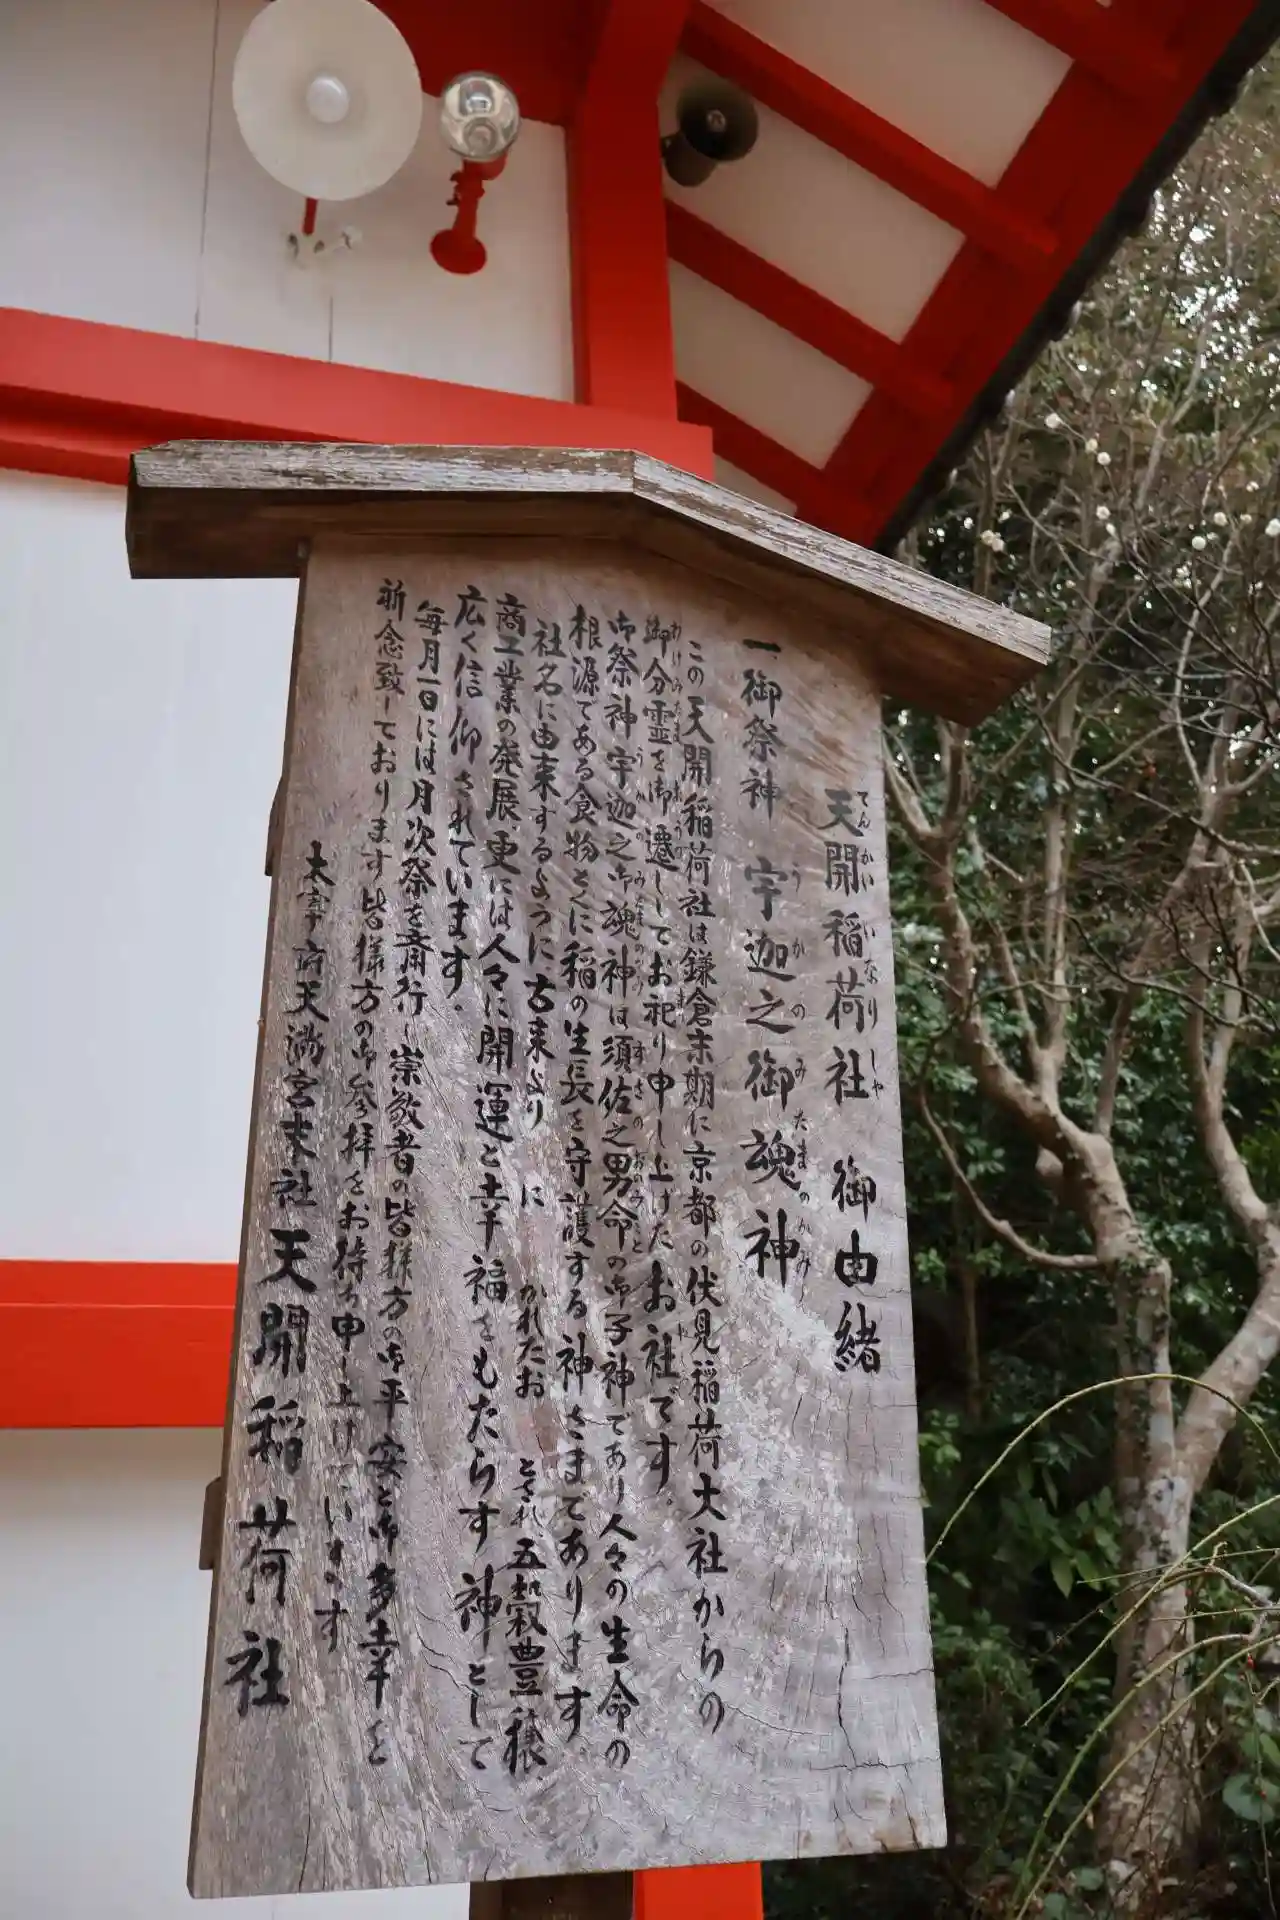 天開稲荷社 御由緒
てんかいいなりしゃ
一、御祭神 宇迦之御魂神
うかのみたまのかみ
この天開稲荷社は鎌倉末期に京都の伏見稲荷大社からの
御分霊を御遷しお祀り申し上げたお社です。
わけみたま
御祭神宇迦之御魂神は須佐之男命の御子神であり人々の生命の
うかのみたまのかみ すさのおのみこと
根源である食物とくに稲の生長を守護する神さまであります。
社名に由来するように古来より に かれたお とされ五穀豊穣、
商工業の発展、更には人々に開運と幸福をもたらす神として
広く信仰されています。
毎月一日には月次祭を斎行し崇敬者の皆様方の御平安と御多幸を
祈念致しております皆様方の御参拝をお待ち申し上げています
太宰府天満宮末社 天開稲荷社